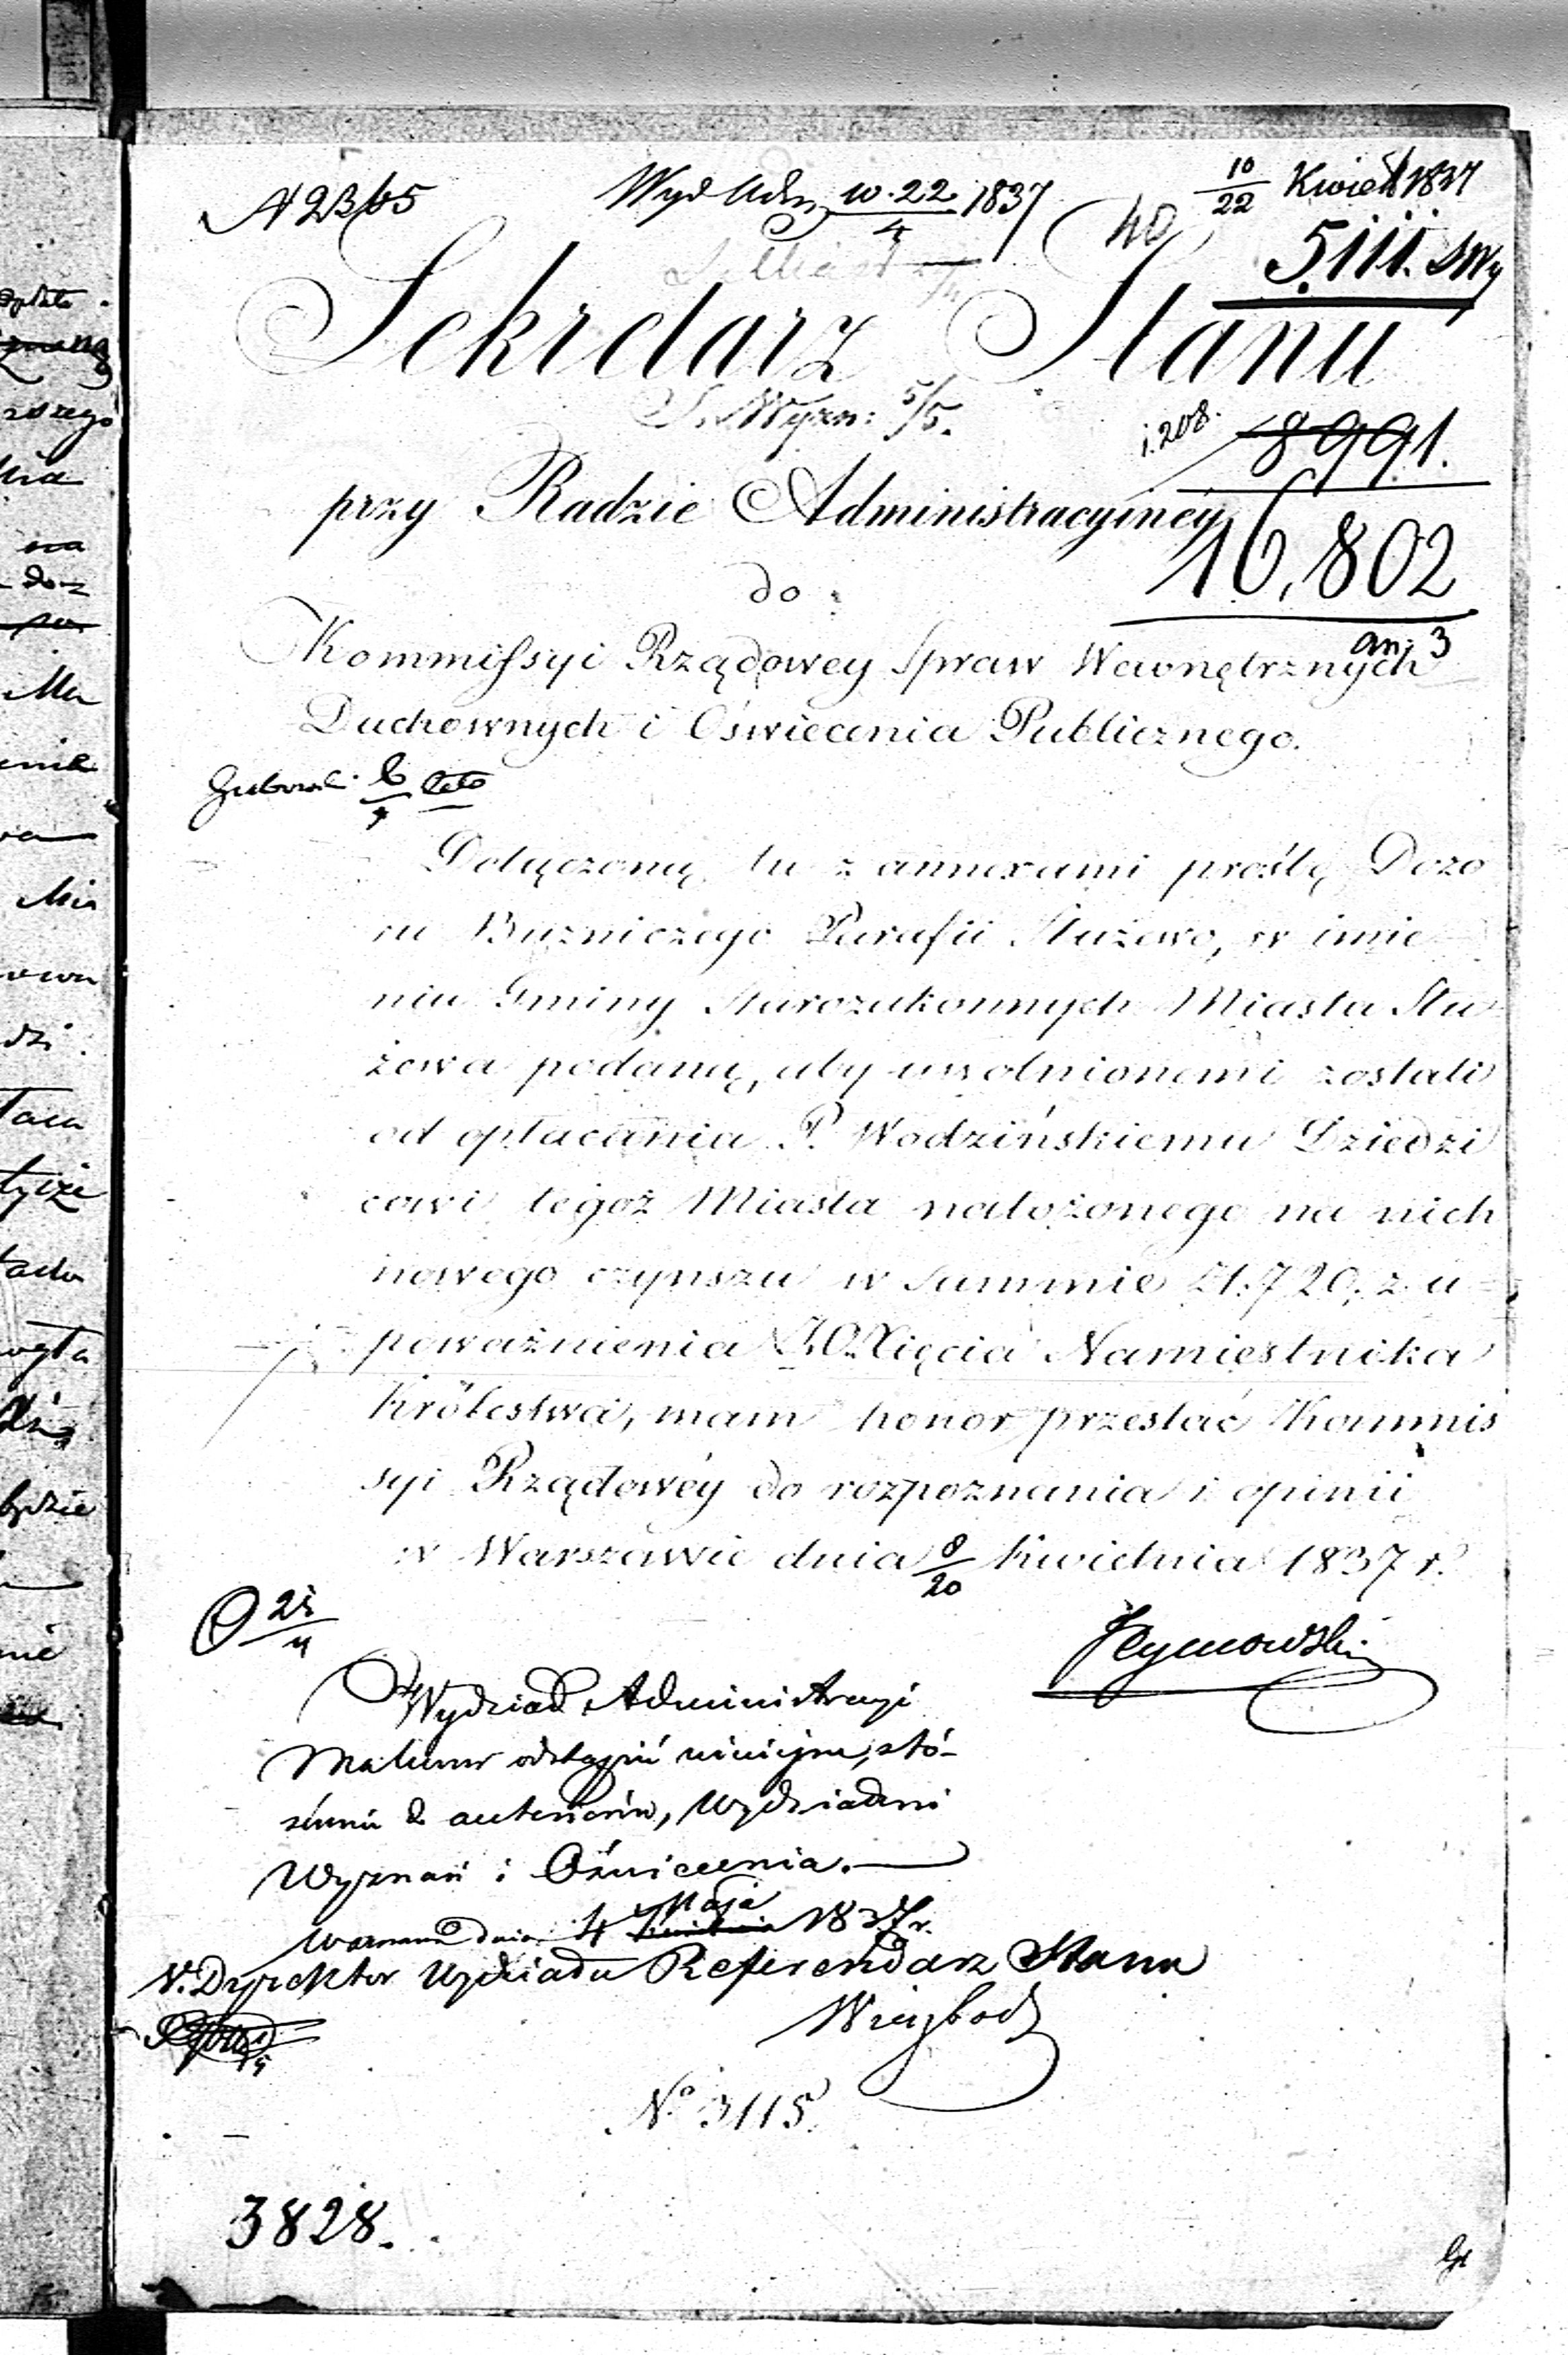 N 2365
Wyd Adm 10.22/4 1837
10/22 Kwiet 1837
40
5111. SWy
Sekretarz Stanu
S. Wyzn: 5/5.
8991.
przy Radzie Administracyiney
16,802
an: 3
do
Kommissyi Rządowey Spraw Wewnętrznych
Duchownych i Oświecenia Publicznego.
Dołączoną tu z annexami prośbę Dozo
ru Bużniczego Parafii Służewo, w imie
niu Gminy Starozakonnych Miasta Słu
żewa podaną, aby uwolnionemi zostali
od opłacania P. Wodzińskiemu Dziedzi
cowi tegoż Miasta nałożonego na nich
nowego czynszu w Summie Zł. 720, z u
poważnienia JO. Xięcia Namiestnika
Królestwa, mam honor przesłać Kommis
syi Rządowéy do rozpoznania i opinii
w Warszawie dnia 8/20 Kwietnia 1837 r.
Wydział Administracyi
odstąpić
Wydziałowi
Wyznań i Oświecenia.
Warszawa dnia 4 Maja 1837 r.
V. Dyrektor Wydziału Referendarz Stanu
No 3115.
3828.